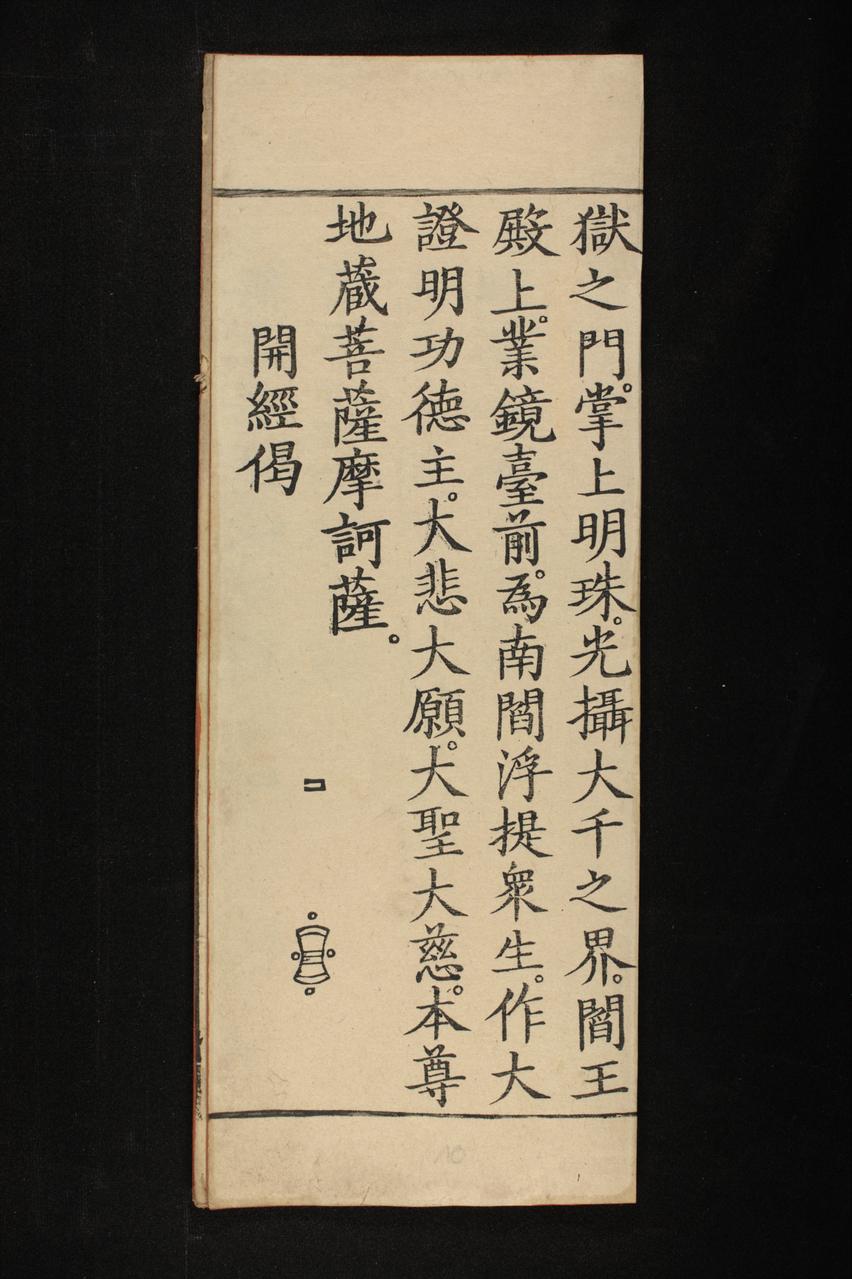 獄之門。掌上明珠。光攝大千之界。閻王
殿上。業鏡臺前。為南閻浮提衆生。作大
證明功德主。大悲大願。大聖大慈。本尊
地蔵菩薩摩訶薩。
開經偈
10